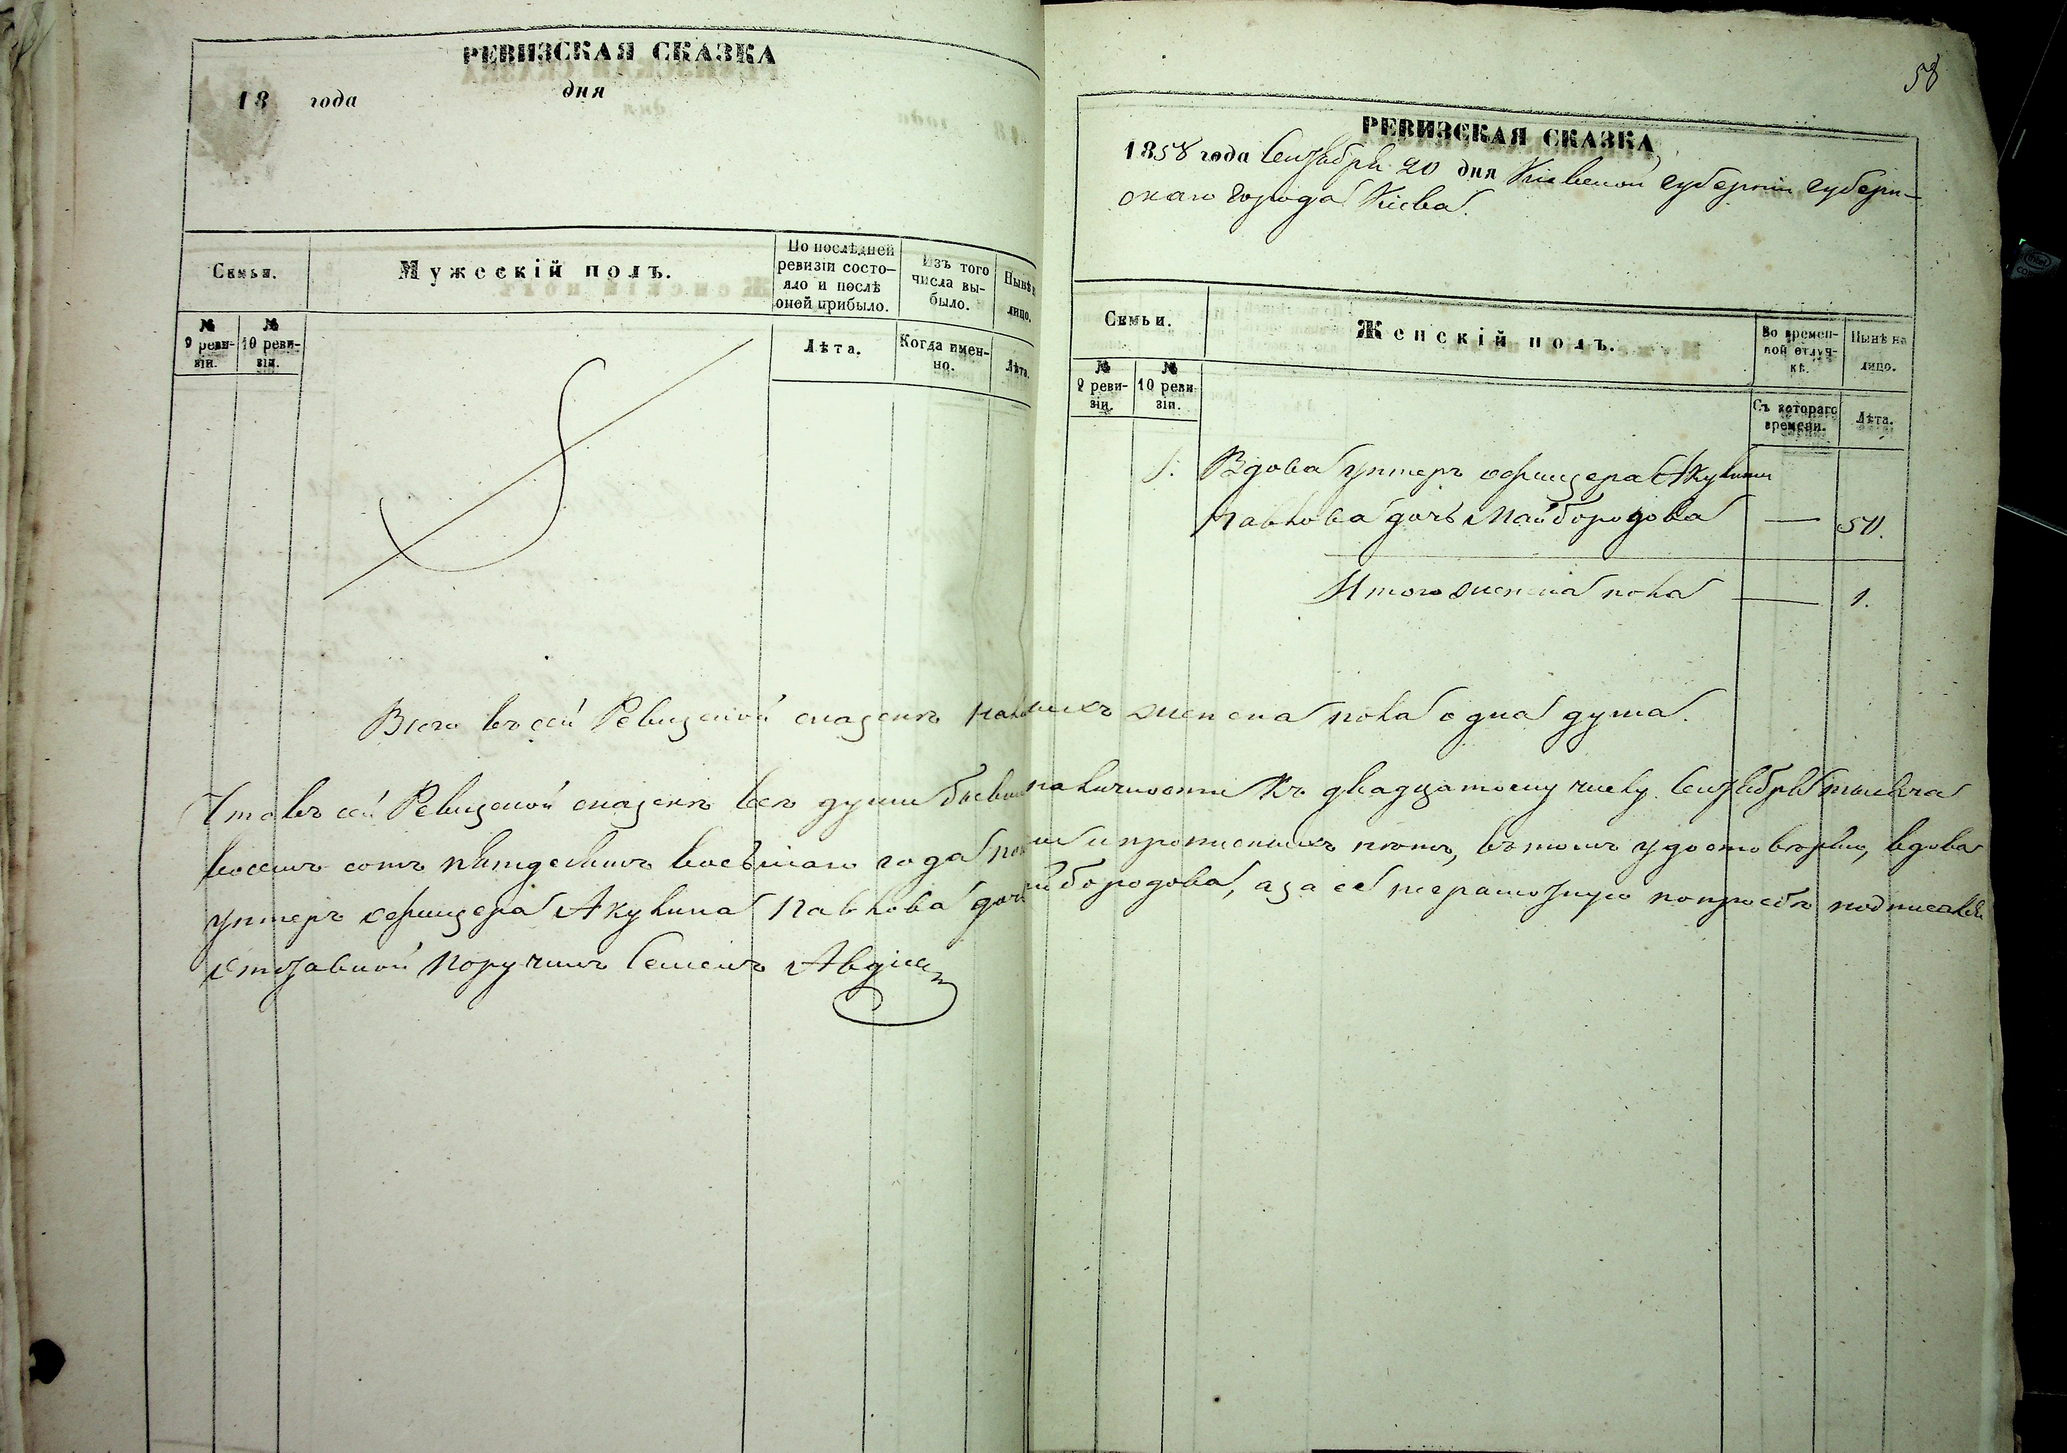 РЕВИЗСКАЯ СКАЗКА
18 года дня
Семьи.
Мужескій полъ.
По послѣдней ревизіи состо-
яло и послѣ
оной прибыло.
Изъ того
числа вы-
было.
Нынѣ н
лицо.
№
9 реви-
зіи.
№
10 реви-
зіи.
Лѣта.
Когда имен-
но.
Лѣта.
58
РЕВИЗСКАЯ СКАЗКА
1858 года Сентября 20 дня Кіевской губерніи губерн-
скаго города Кіева.
Семьи.
Женскій полъ.
Во времен-
ной отлуч-
кѣ.
Нынѣ на
лицо.
№
9 реви-
зіи.
№
10 реви-
зіи.
Съ котораго
времени.
Лѣта.
1. Вдова унтеръ офицера Акулина
Павлова дочь Майбородова — 50.
Итого женска пола — 1.
Всего въ сей Ревизской сказкѣ наличныхъ женска пола одна душа.
Что въ сей Ревизской сказкѣ всѣ души бывшія наличности къ двадцатому числу Сентября тысяча
восемъ сотъ пятдесятъ восьмаго года и прописныхъ нѣтъ, въ томъ удостовѣряю, вдова
унтеръ офицера Акулина Павлова дочь Майбородова, а за её неграмотную по просьбѣ подписался
отставной Поручикъ Семенъ